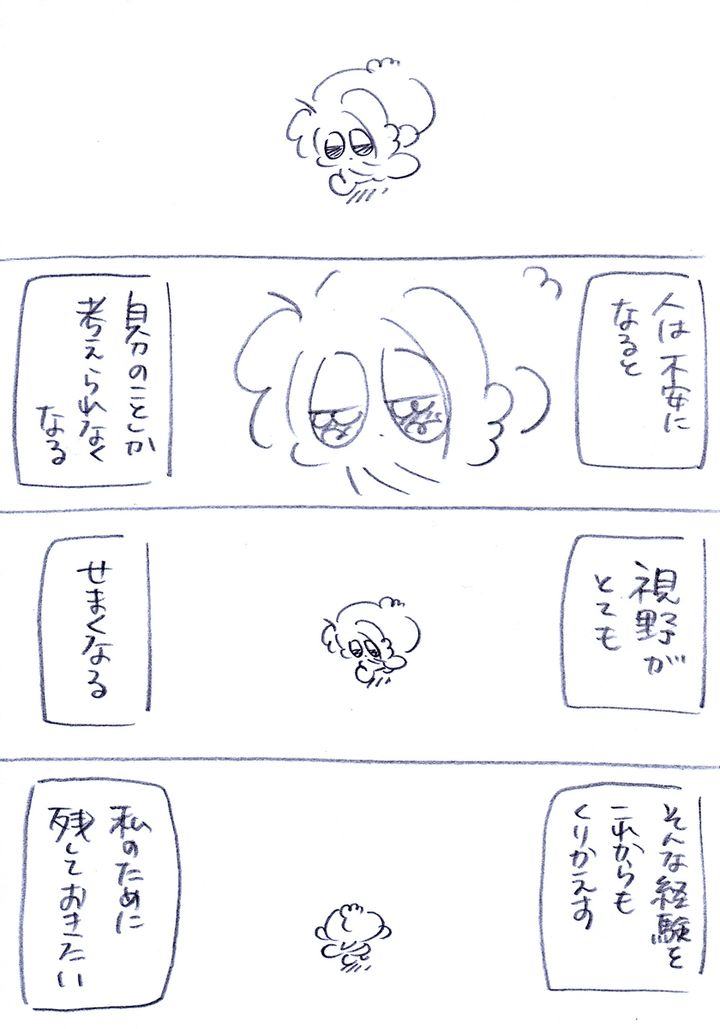 人は不安に
なると
自分のことしか
考えられなく
なる
視野が
とても
せまくなる
そんな経験を
これからも
くりかえす
私のために
残しておきたい